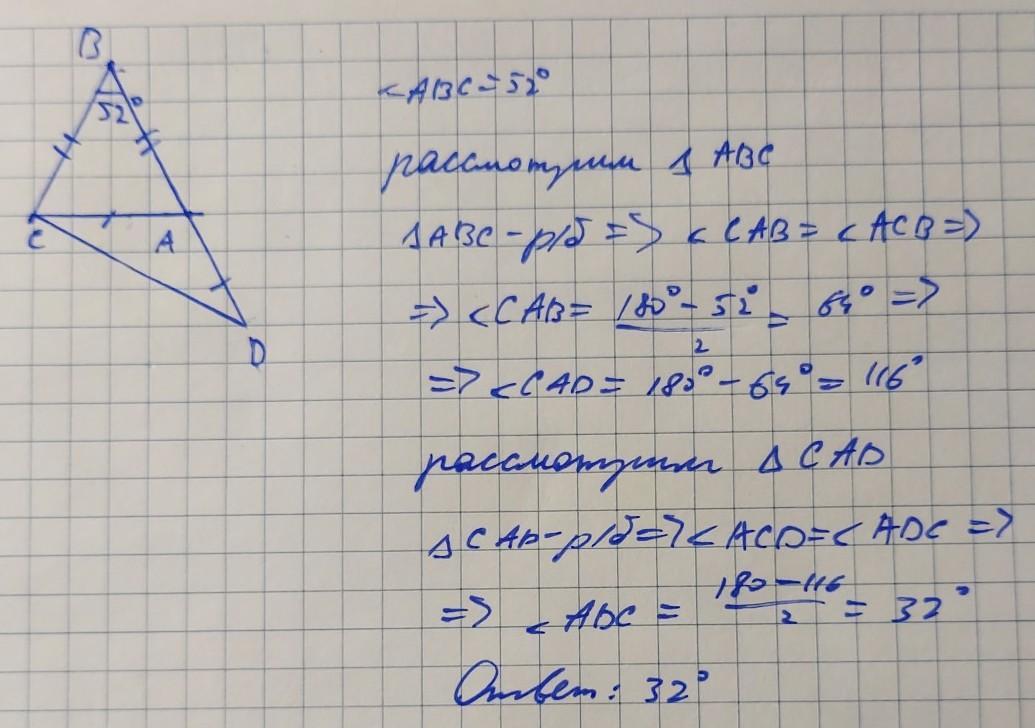 B
52°
C
A
D
<ABC=52°
рассмотрим Δ ABC
ΔABC-р/б => <CAB = <ACB =>
=> <CAB = 180° - 52° / 2 = 64° =>
=> <CAD = 180° - 64° = 116°
рассмотрим Δ CAD
Δ CAD-р/б => <ACD = <ADC =>
=> <ADC = 180 - 116 / 2 = 32°
Ответ: 32°